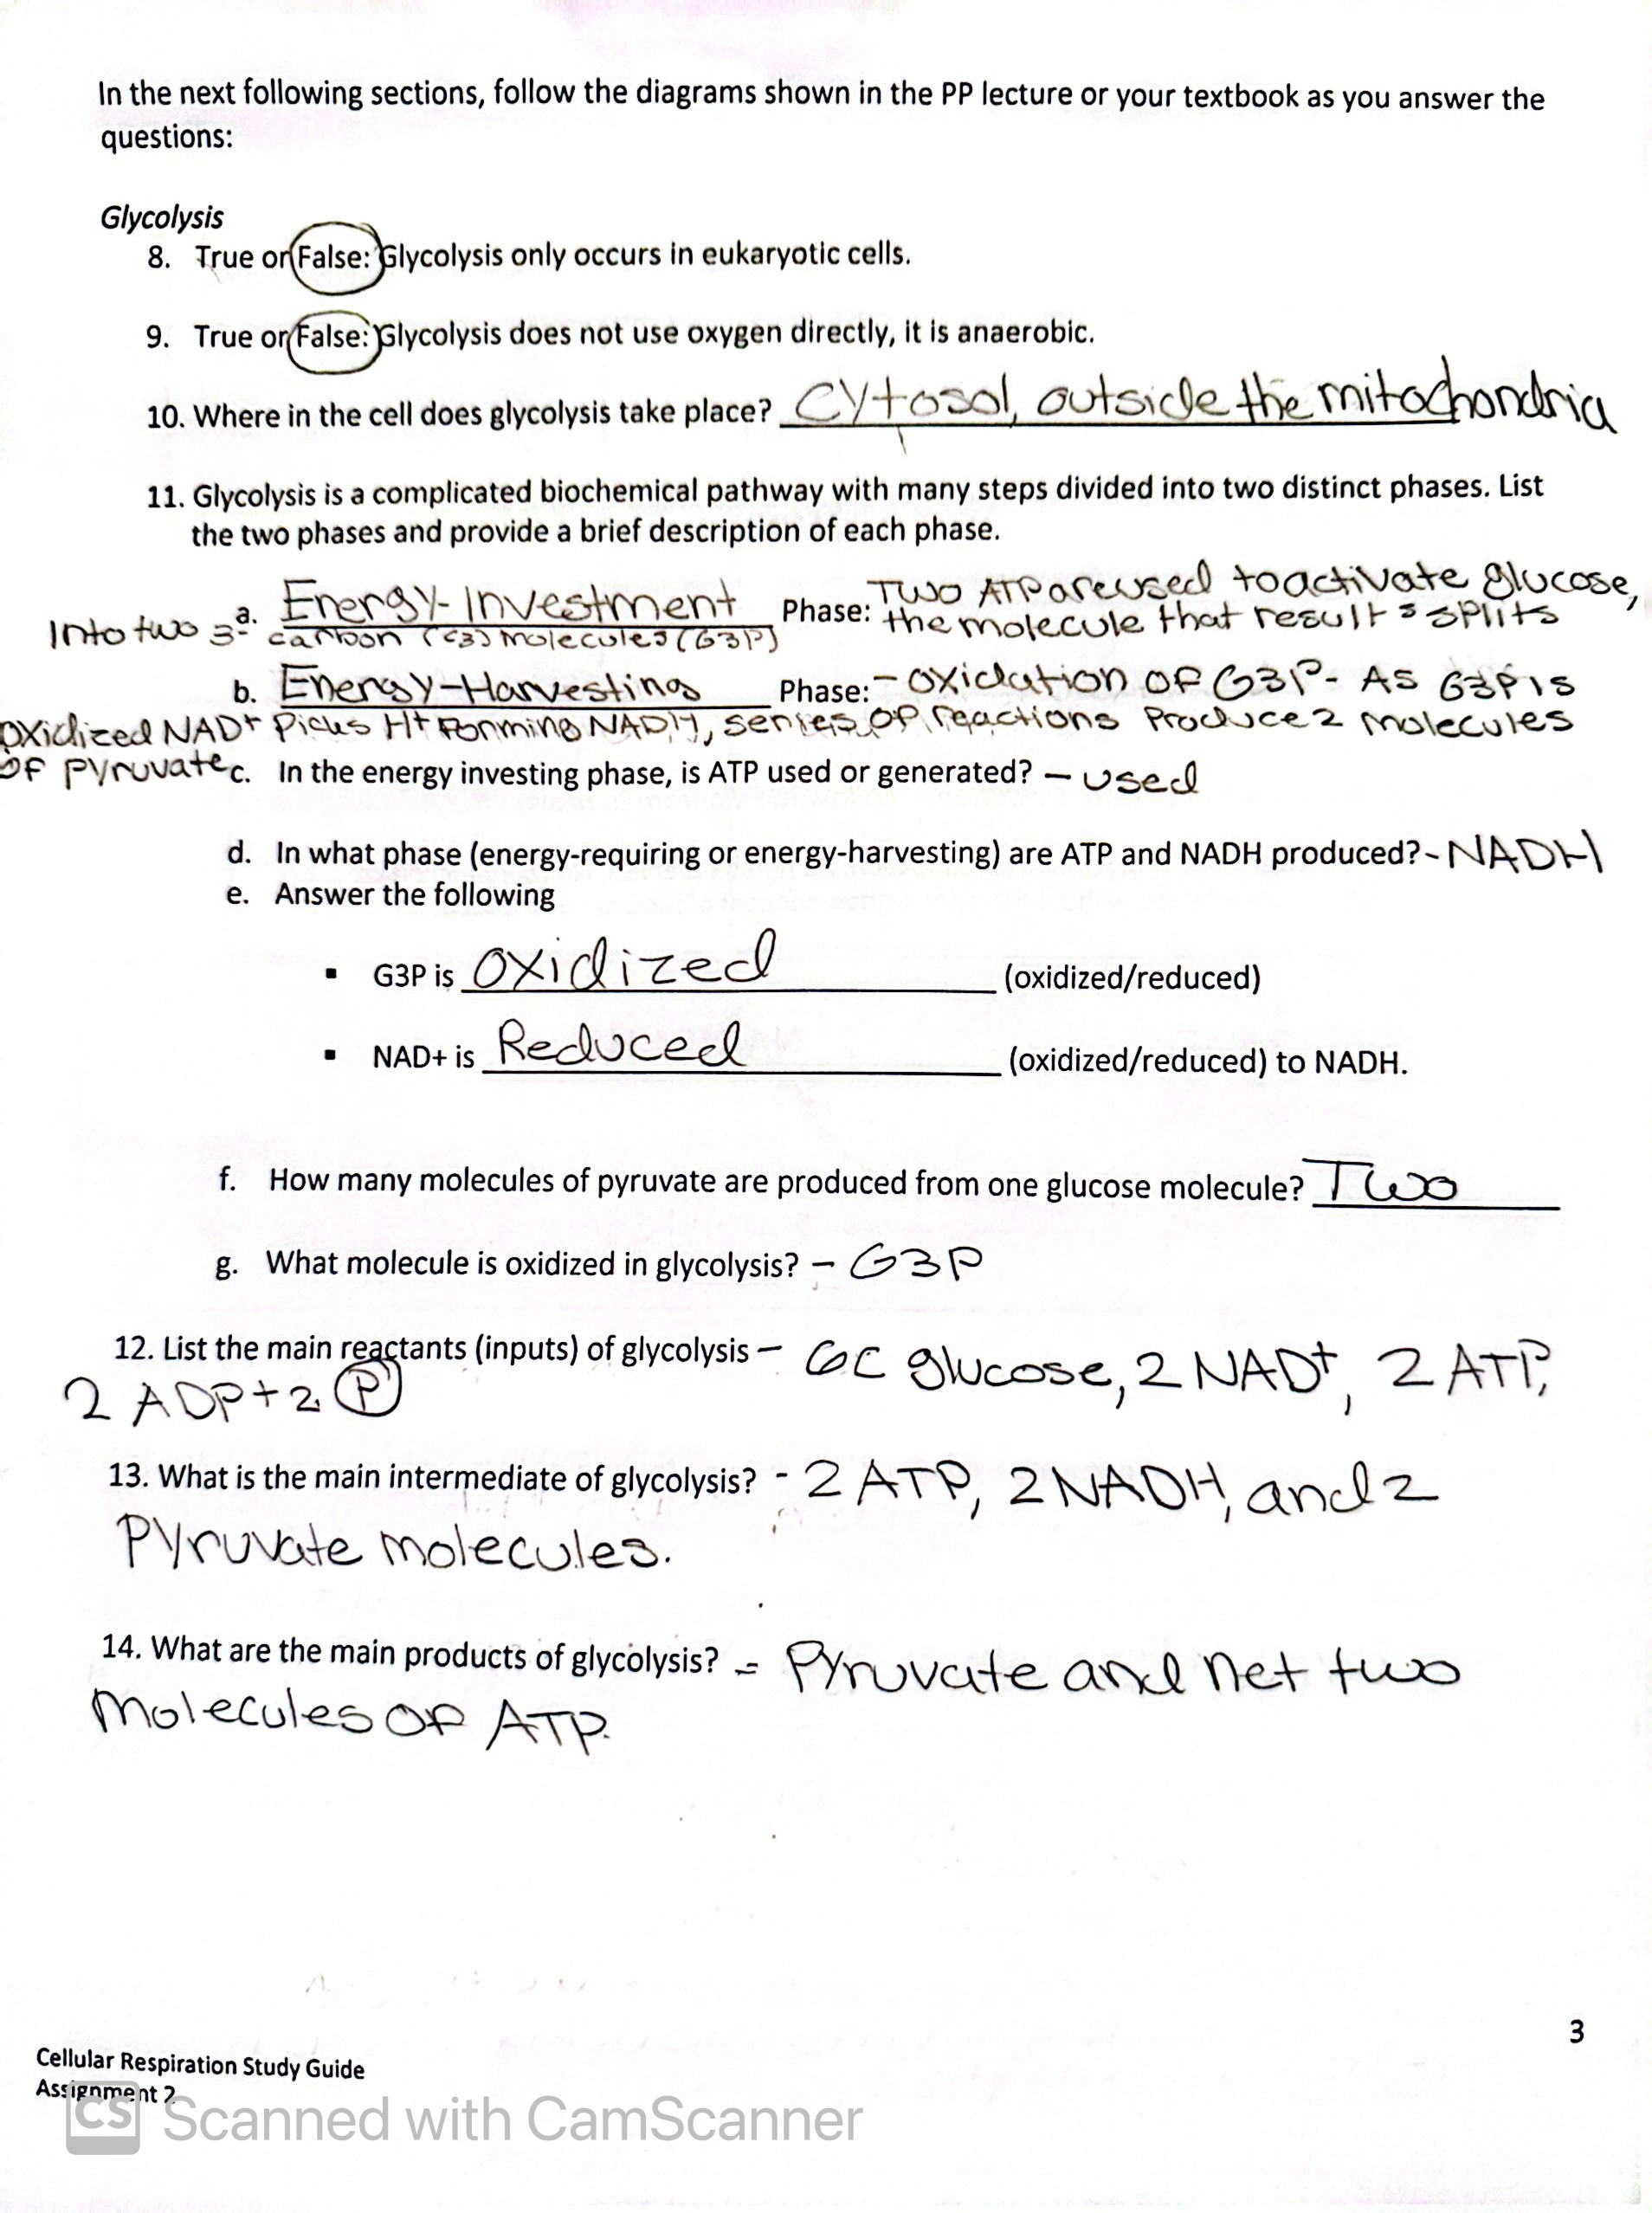 In the next following sections, follow the diagrams shown in the PP lecture or your textbook as you answer the
questions:
Glycolysis
8. True or False: Glycolysis only occurs in eukaryotic cells.
9. True or False: Glycolysis does not use oxygen directly, it is anaerobic.
10. Where in the cell does glycolysis take place? Cytosol, outside the mitochondria
11. Glycolysis is a complicated biochemical pathway with many steps divided into two distinct phases. List
the two phases and provide a brief description of each phase.
a. Energy-Investment Phase: Two ATP are used to activate glucose,
the molecule that results splits
Into two 3-carbon (C3) molecules (G3P)
b. Energy-Harvesting Phase: - oxidation of G3P- As G3P is
oxidized NAD+ Picks H+ forming NADH, series of reactions Produce 2 molecules
of pyruvate
c. In the energy investing phase, is ATP used or generated? - used
d. In what phase (energy-requiring or energy-harvesting) are ATP and NADH produced? - NADH
e. Answer the following
▪ G3P is oxidized (oxidized/reduced)
▪ NAD+ is Reduced (oxidized/reduced) to NADH.
f. How many molecules of pyruvate are produced from one glucose molecule? Two
g. What molecule is oxidized in glycolysis? - G3P
12. List the main reactants (inputs) of glycolysis - 6C glucose, 2 NAD+, 2 ATP,
2 ADP + 2 P
13. What is the main intermediate of glycolysis? - 2 ATP, 2 NADH, and 2
Pyruvate molecules.
14. What are the main products of glycolysis? = Pyruvate and net two
Molecules of ATP.
3
Cellular Respiration Study Guide
Assignment 2
CS Scanned with CamScanner